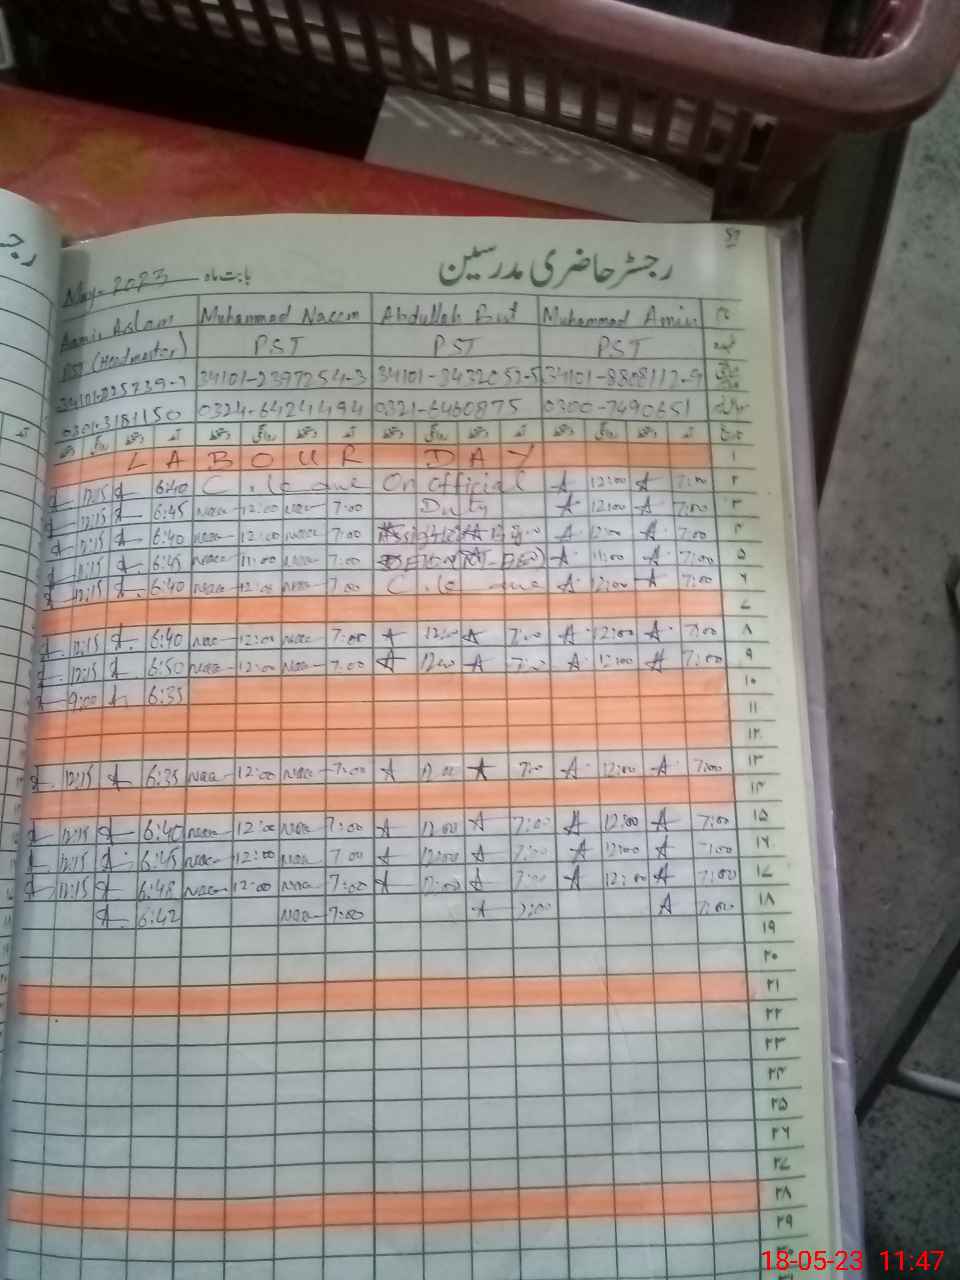 رجسٹر حاضری مدرسین
بابت ماہ May-2023
Aamir Aslam Muhammad Naeem Abdullah Butt Muhammad Amin نام
PST (Headmaster) PST PST PST عہدہ
34101-2397254-3 34101-3432052-5 34101-8808112-9
0301-3181150 0324-6424494 0321-6460875 0300-7490651
LABOUR DAY ۱
12:15 6:40 C. leave On Official A 12:00 A 7:00 ۲
12:15 6:45 Naee 12:00 Naee 7:00 Duty A 12:00 A 7:00 ۳
12:15 6:40 Naee 12:00 Naee 7:00 A 12:00 A 7:00 ۴
11:15 6:45 Naee 11:00 Naee 7:00 A 11:00 A 7:00 ۵
12:15 6:40 Naee 12:00 Naee 7:00 C. leave A 12:00 A 7:00 ۶
۷
12:15 6:40 Naee 12:00 Naee 7:00 A 12:00 A 7:00 A 12:00 A 7:00 ۸
12:15 6:50 Naee 12:00 Naee 7:00 A 12:00 A 7:00 A 12:00 A 7:00 ۹
9:00 6:35 ۱۰
۱۱
۱۲
12:15 6:35 Naee 12:00 Naee 7:00 A 12:00 A 7:00 A 12:00 A 7:00 ۱۳
۱۴
12:15 6:40 Naee 12:00 Naee 7:00 A 12:00 A 7:00 A 12:00 A 7:00 ۱۵
12:15 6:45 Naee 12:00 Naee 7:00 A 12:00 A 7:00 A 12:00 A 7:00 ۱۶
12:15 6:48 Naee 12:00 Naee 7:00 A 12:00 A 7:00 A 12:00 A 7:00 ۱۷
6:42 Naee 7:00 A 7:00 A 7:00 ۱۸
۱۹
۲۰
۲۱
۲۲
۲۳
۲۴
۲۵
۲۶
۲۷
۲۸
۲۹
18-05-23 11:47